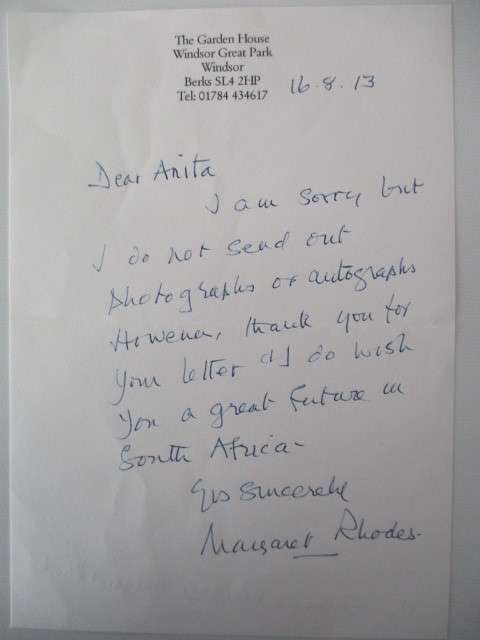 The Garden House
Windsor Great Park
Windsor
Berks SL4 2HP
Tel: 01784 434617
16.8.13
Dear Anita
I am sorry but
I do not send out
photographs or autographs
However, thank you for
your letter & I do wish
you a great future in
South Africa -
Yrs sincerely
Margaret Rhodes.